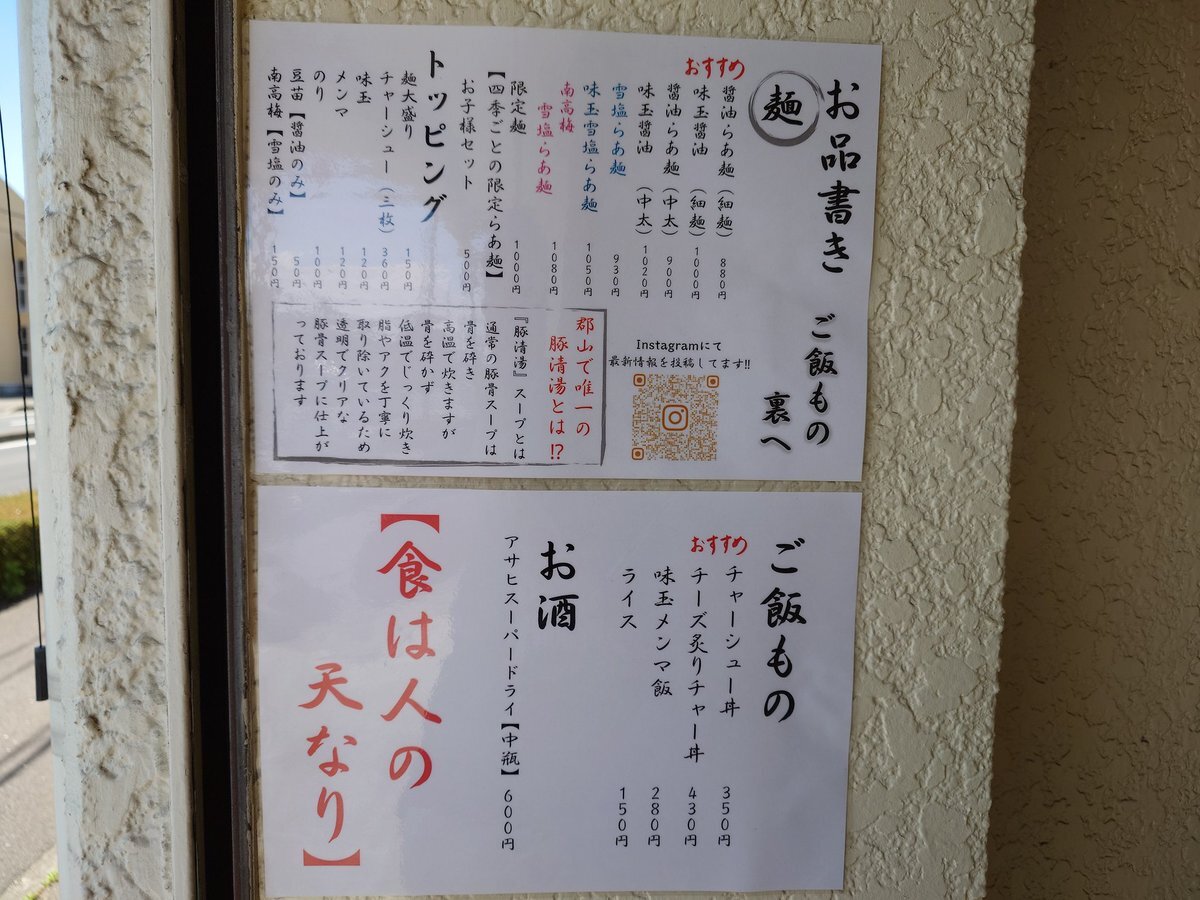 お品書き
麺
醤油らあ麺（細麺） 880円
おすすめ
味玉醤油（細麺） 1000円
醤油らあ麺（中太） 900円
味玉醤油（中太） 1020円
雪塩らあ麺 930円
味玉雪塩らあ麺 1050円
南高梅
雪塩らあ麺 1080円
限定麺 1000円
【四季ごとの限定らあ麺】
お子様セット 500円
トッピング
麺大盛り 150円
チャーシュー（三枚） 360円
味玉 120円
メンマ 120円
のり 100円
豆苗【醤油のみ】 50円
南高梅【雪塩のみ】 150円
ご飯もの
裏へ
Instagramにて
最新情報を投稿してます!!
郡山で唯一の
豚清湯とは!?
『豚清湯』スープとは
通常の豚骨スープは
骨を砕き
高温で炊きますが
骨を砕かず
低温でじっくり炊き
脂やアクを丁寧に
取り除いているため
透明でクリアな
豚骨スープに仕上が
っております
ご飯もの
チャーシュー丼 350円
おすすめ
チーズ炙りチャー丼 430円
味玉メンマ飯 280円
ライス 150円
お酒
アサヒスーパードライ【中瓶】 600円
【食は人の
天なり】